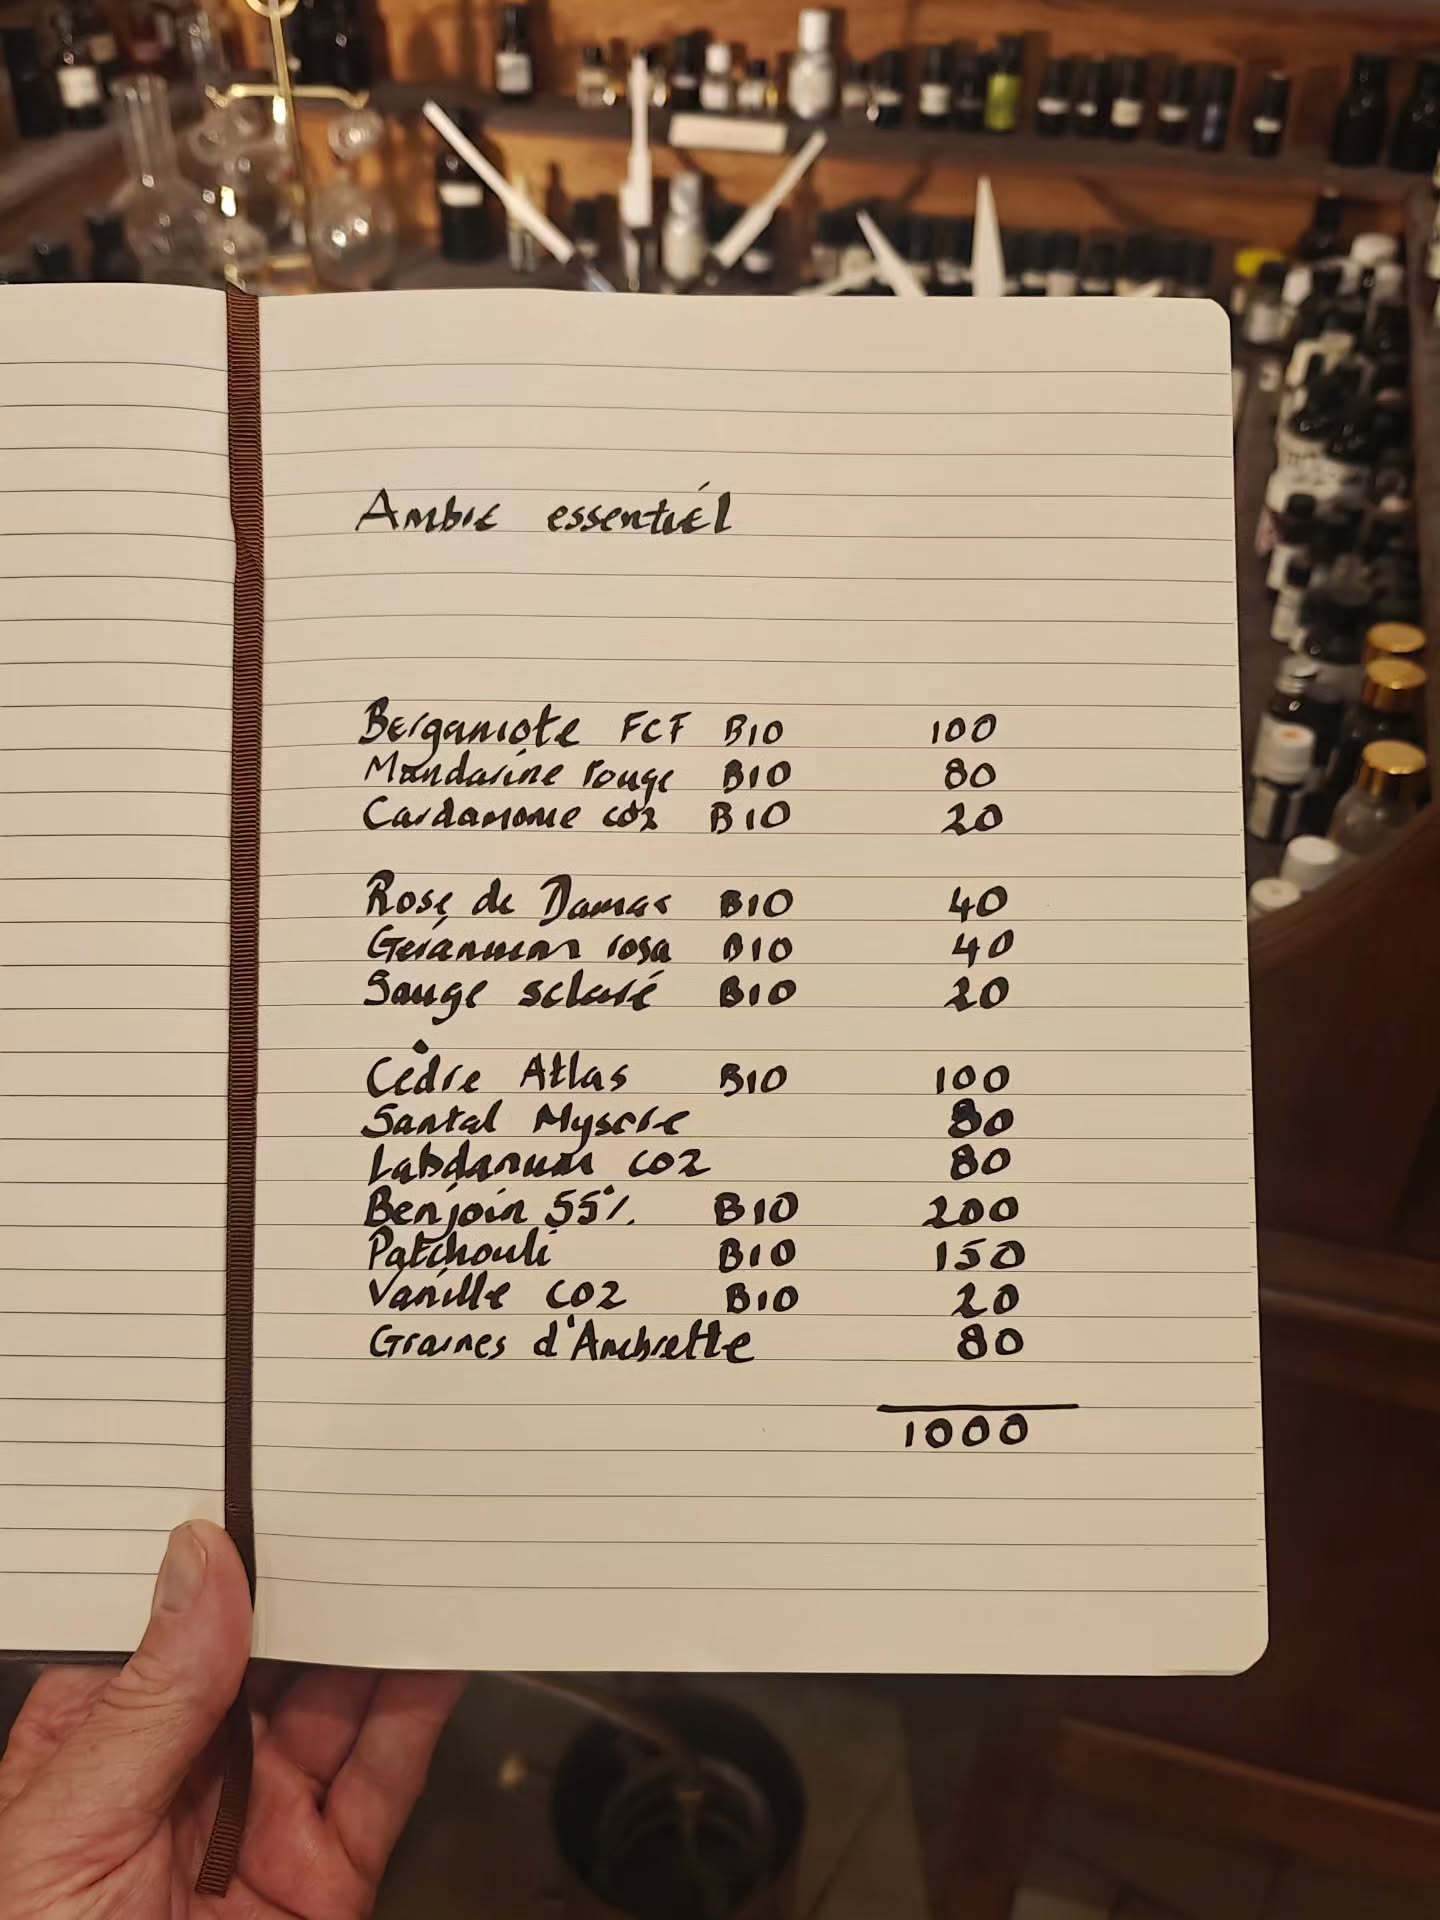 Ambre essentiél
Bergamote FCF BIO 100
Mandarine rouge BIO 80
Cardamome CO2 BIO 20
Rose de Damas BIO 40
Géranium rosa BIO 40
Sauge sclaré BIO 20
Cèdre Atlas BIO 100
Santal Mysore 80
Labdanum CO2 80
Benjoin 55% BIO 200
Patchouli BIO 150
Vanille CO2 BIO 20
Graines d'Ambrette 80
1000